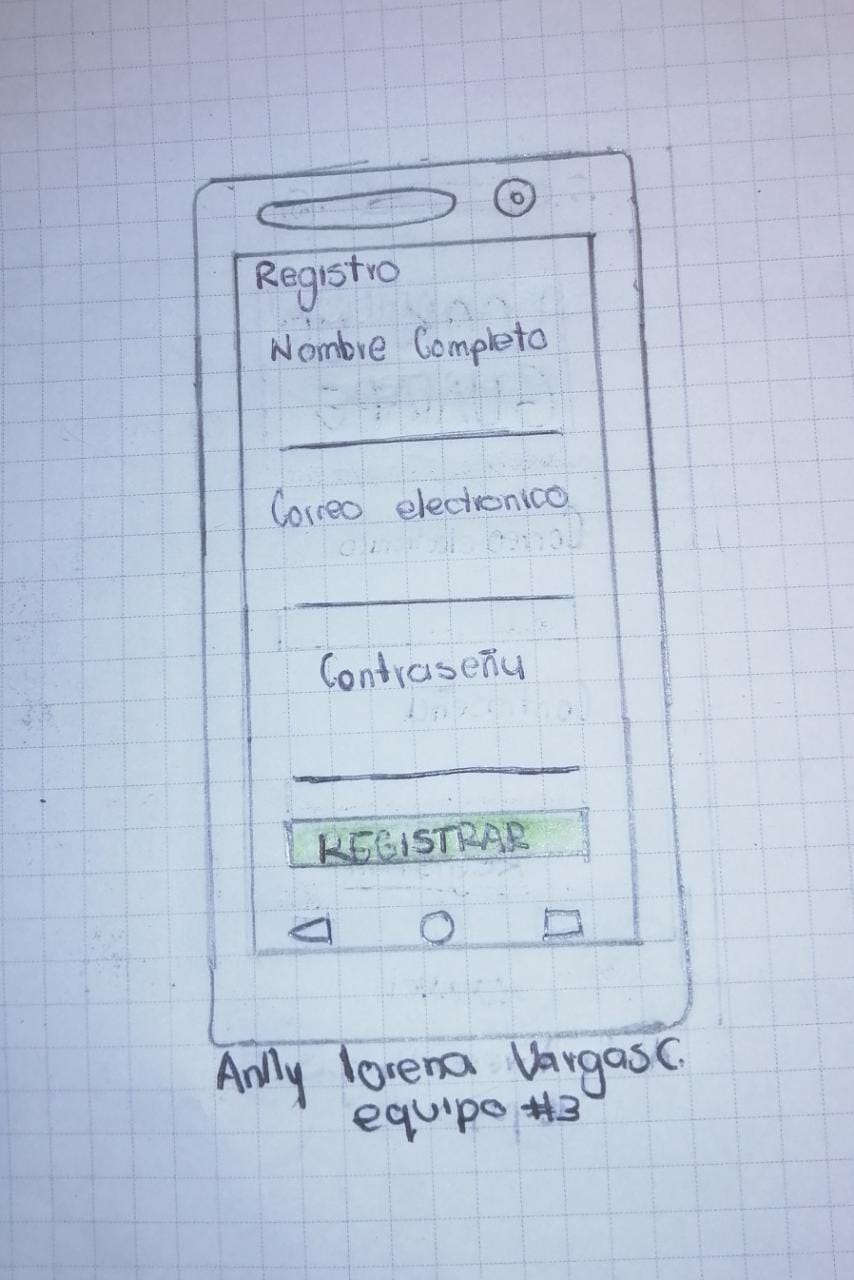 Registro
Nombre Completo
Correo electronico
Contraseña
REGISTRAR
Anlly lorena Vargas C.
equipo #3